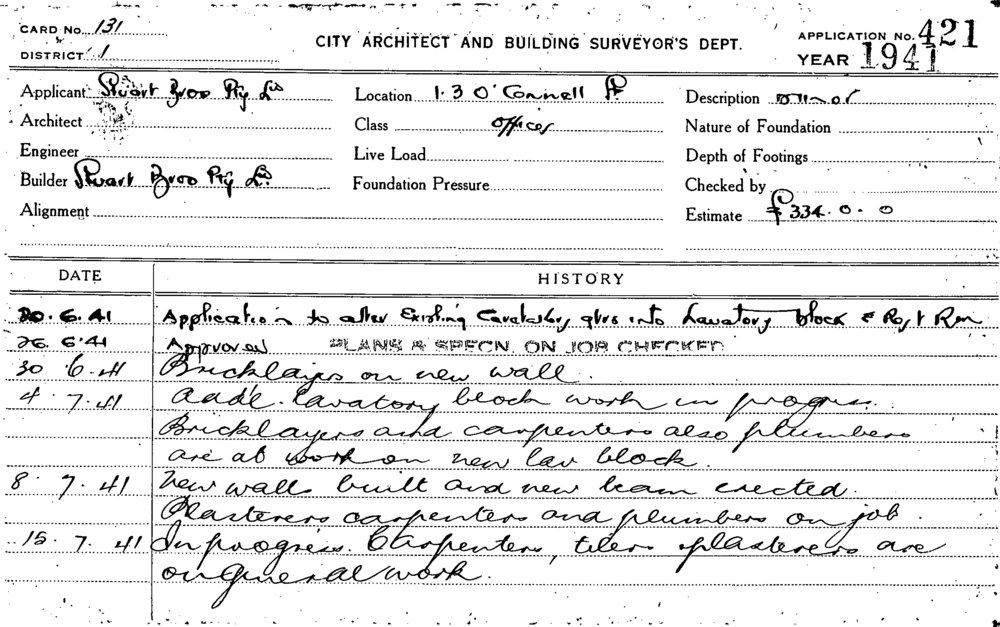 CARD No. 131
DISTRICT 1
CITY ARCHITECT AND BUILDING SURVEYOR'S DEPT.
APPLICATION No. 421
YEAR 1941
Applicant Stuart Bros Pty Ld
Location 1.3 O'Connell St
Description Minor
Architect
Class Offices
Nature of Foundation
Engineer
Live Load
Depth of Footings
Builder Stuart Bros Pty Ld.
Foundation Pressure
Checked by
Alignment
Estimate £334.0.0
DATE HISTORY
20.6.41 Application to alter Existing Caretakers qtrs into Lavatory block & Rest Rm
26.6.41 Approved PLANS & SPECN. ON JOB CHECKED
30 6.41 Bricklayers on new wall.
4.7.41 Aadl. lavatory block work in progress.
Bricklayers and carpenters also plumbers
are at work on new lav block.
8.7.41 New walls built and new beam erected.
Plasterers carpenters and plumbers on job.
15.7.41 In progress. Carpenters, tilers plasterers are
on General work.